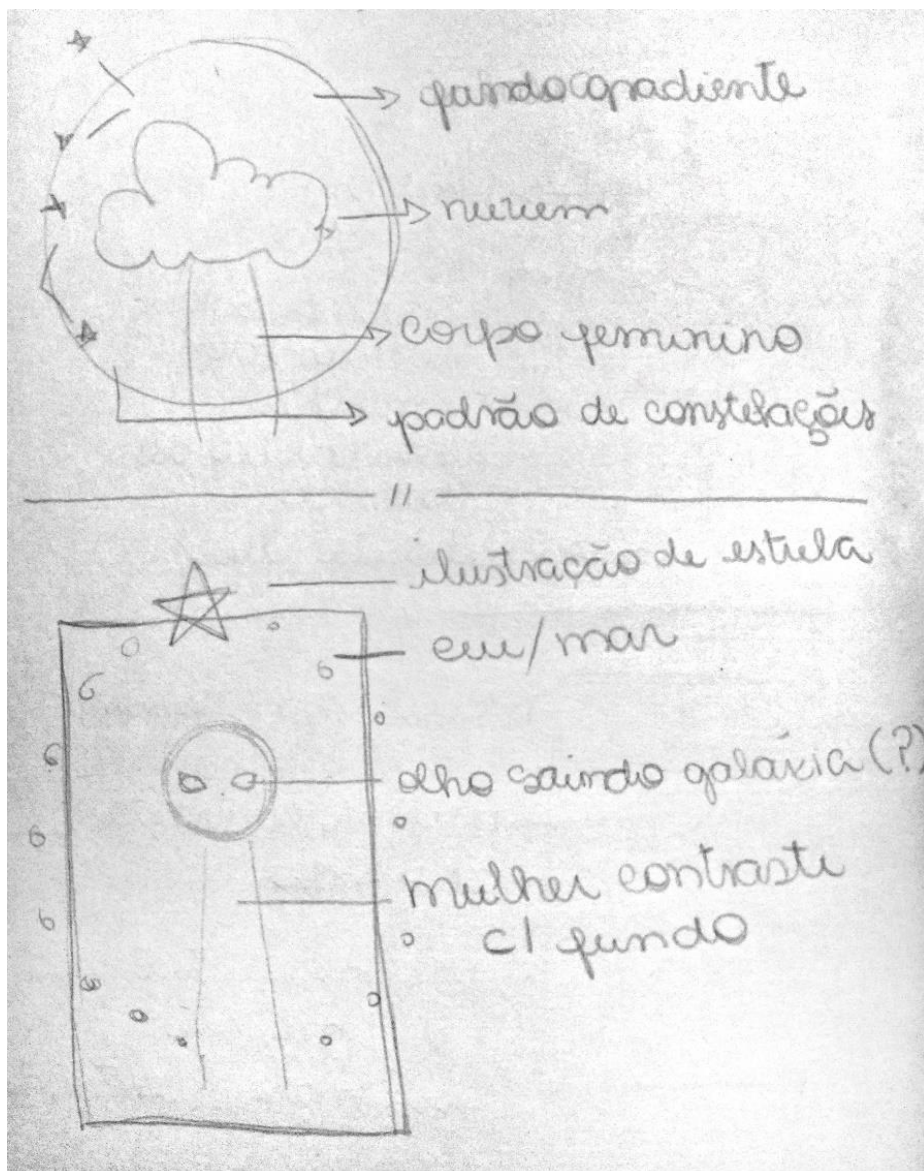 fundo gradiente
nuvem
corpo feminino
padrão de constelações
ilustração de estrela
céu/mar
olho saindo galáxia (?)
mulher contraste
c/ fundo